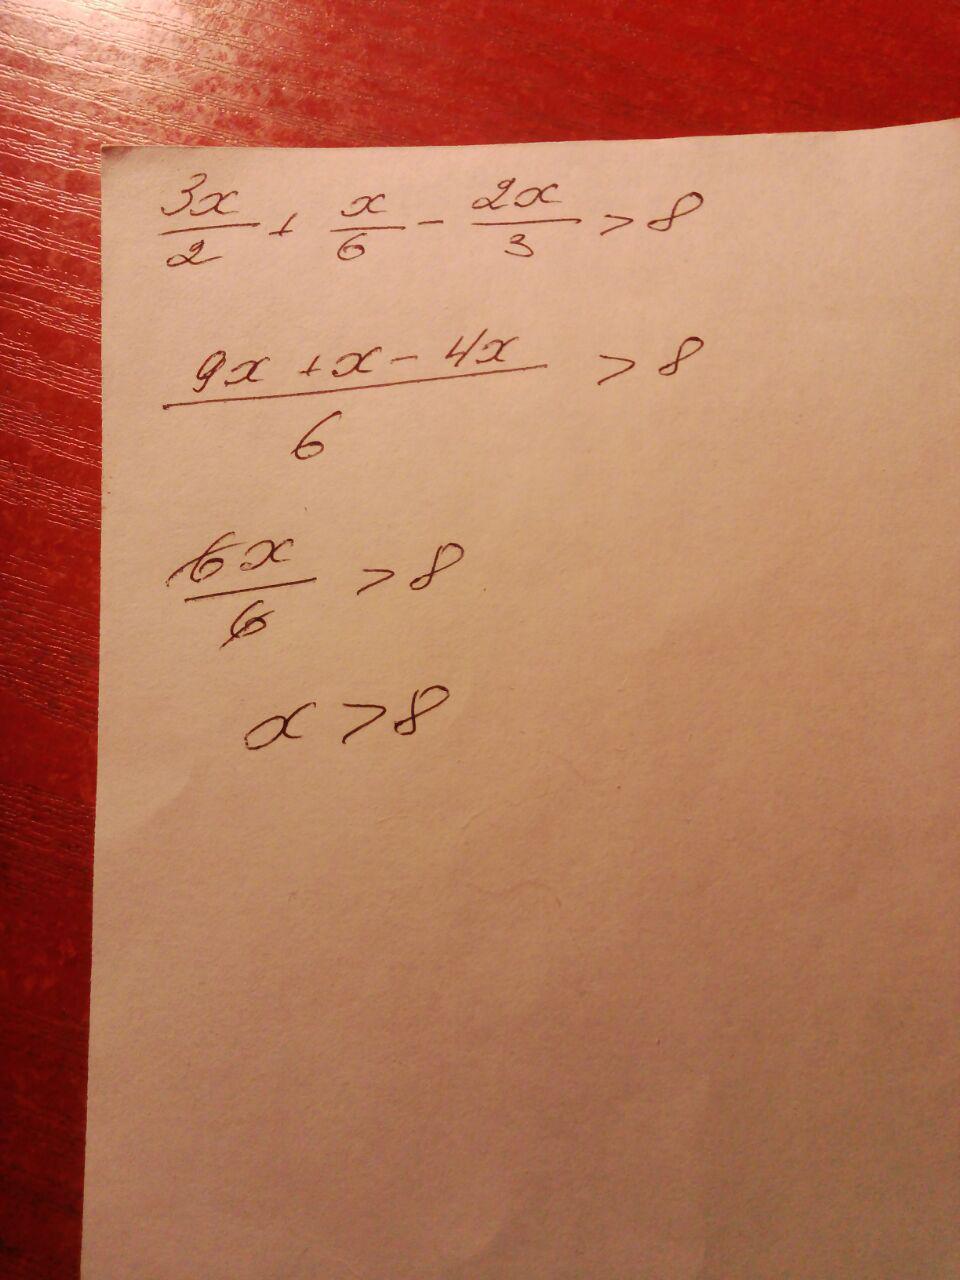 3x/2 + x/6 - 2x/3 > 8
9x + x - 4x / 6 > 8
6x/6 > 8
x > 8